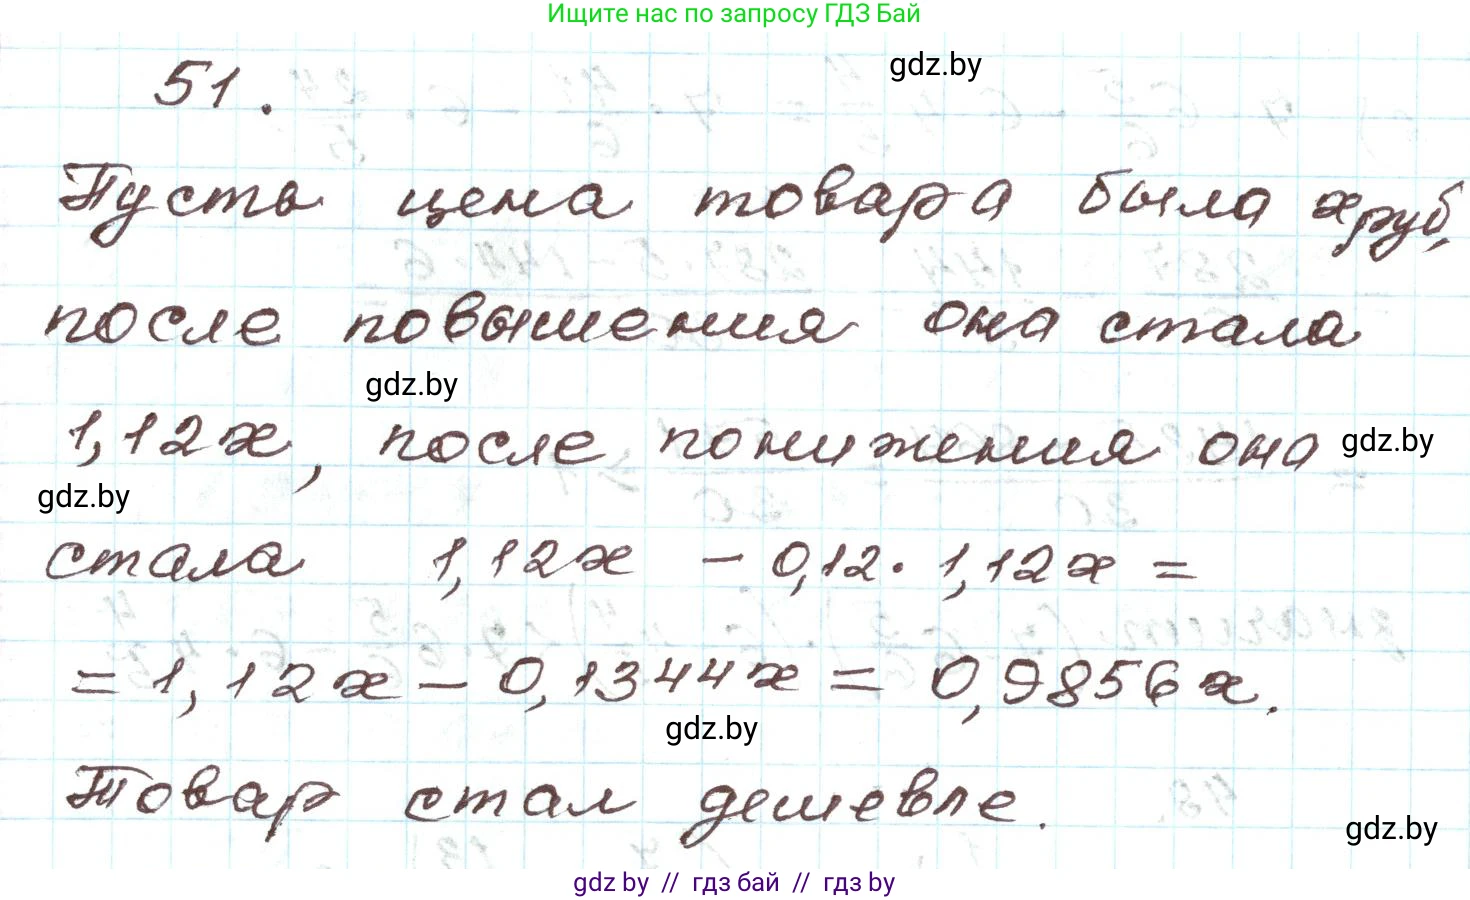 Ищите нас по запросу ГДЗ Бай
51.
gdz.by
Пусть цена товара была x руб,
после повышения она стала
gdz.by
1,12x, после понижения она
gdz.by
gdz.by
стала 1,12x - 0,12 · 1,12x =
= 1,12x - 0,1344x = 0,9856x.
gdz.by
Товар стал дешевле.
gdz.by
gdz by // гдз бай // гдз by